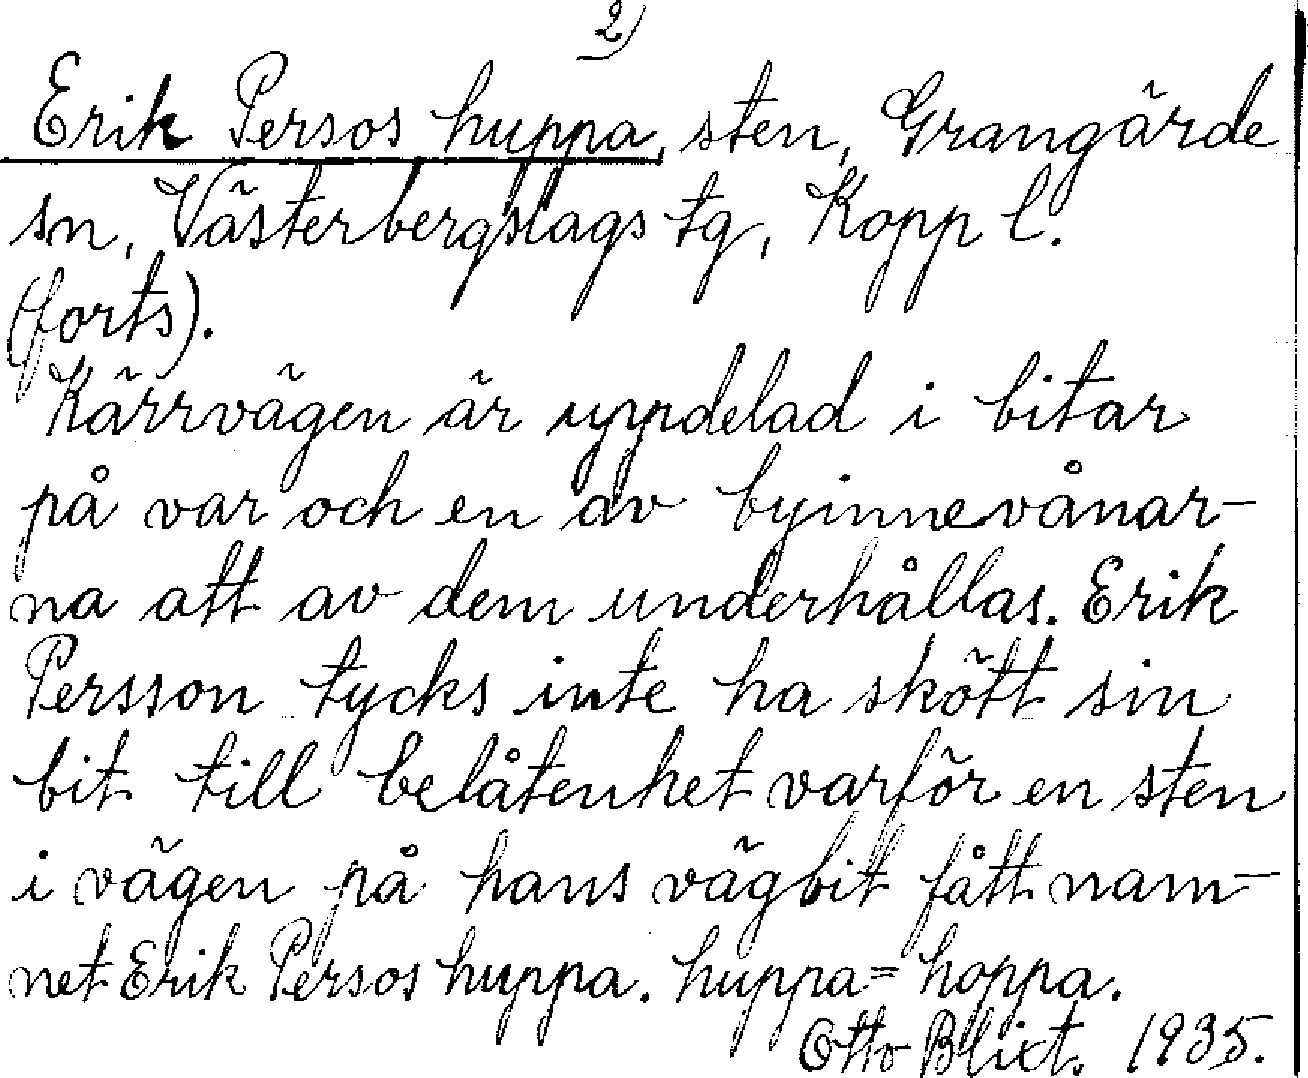 2)
Erik Persos huppa, sten, Grangärde
sn, Västerbergslags tg, Kopp l.
(forts).
Kärrvägen är uppdelad i bitar
på var och en av byinnevånar-
na att av dem underhållas. Erik
Persson tycks inte ha skött sin
bit till belåtenhet varför en sten
i vägen på hans vägbit fått nam-
net Erik Persos huppa. huppa = hoppa.
Otto Blixt. 1935.